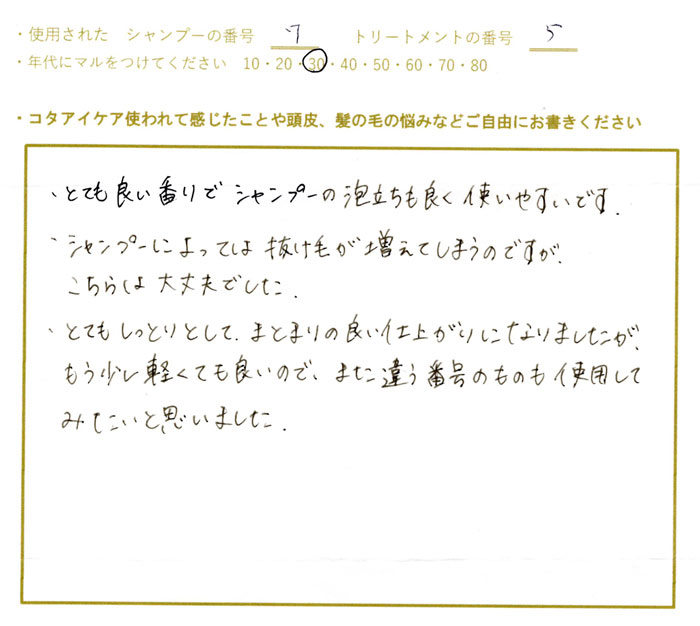 ・使用された シャンプーの番号 7 トリートメントの番号 5
・年代にマルをつけてください 10・20・30・40・50・60・70・80
・コタアイケア使われて感じたことや頭皮、髪の毛の悩みなどご自由にお書きください
・とても良い番りで シャンプーの泡立ちも良く使いやすいです.
・シャンプーによっては抜け毛が増えてしまうのですが、
こちらは大丈夫でした.
・とてもしっとりとして、まとまりの良い仕上がりになりましたが、
もう少し軽くても良いので、また違う番号のものも使用して
みたいと思いました.